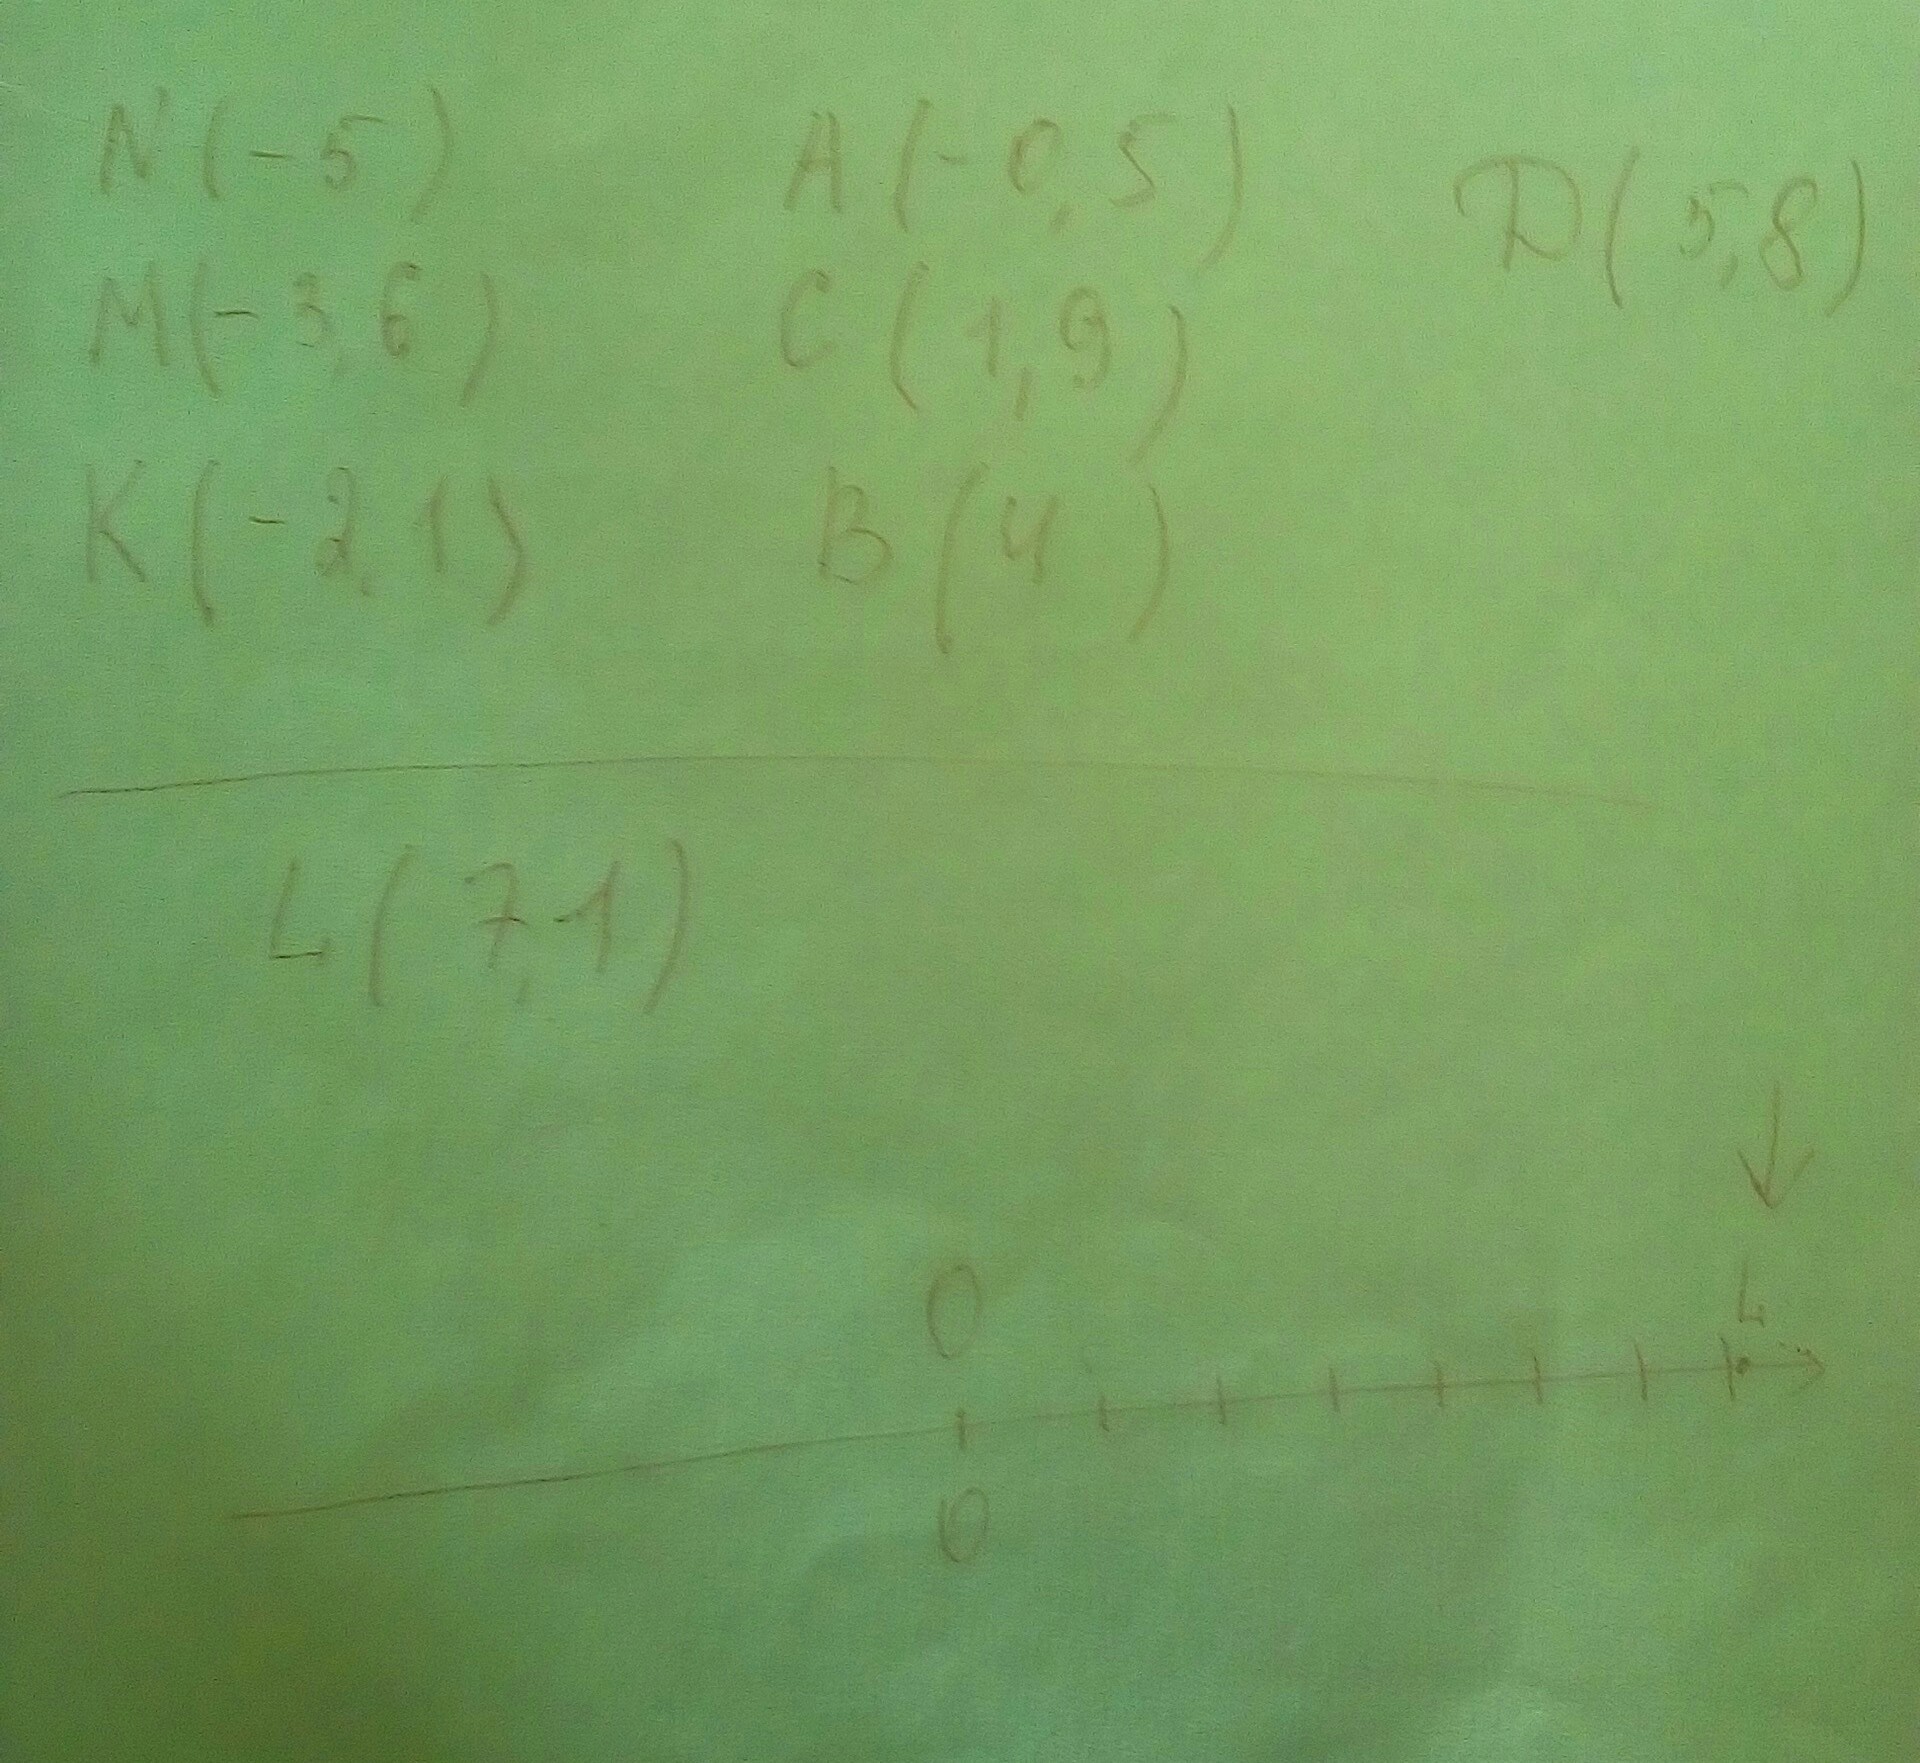 N(-5) A(-0,5) D(5,8)
M(-3,6) C(1,9)
K(-2,1) B(4)
L(7,1)
L
0
0